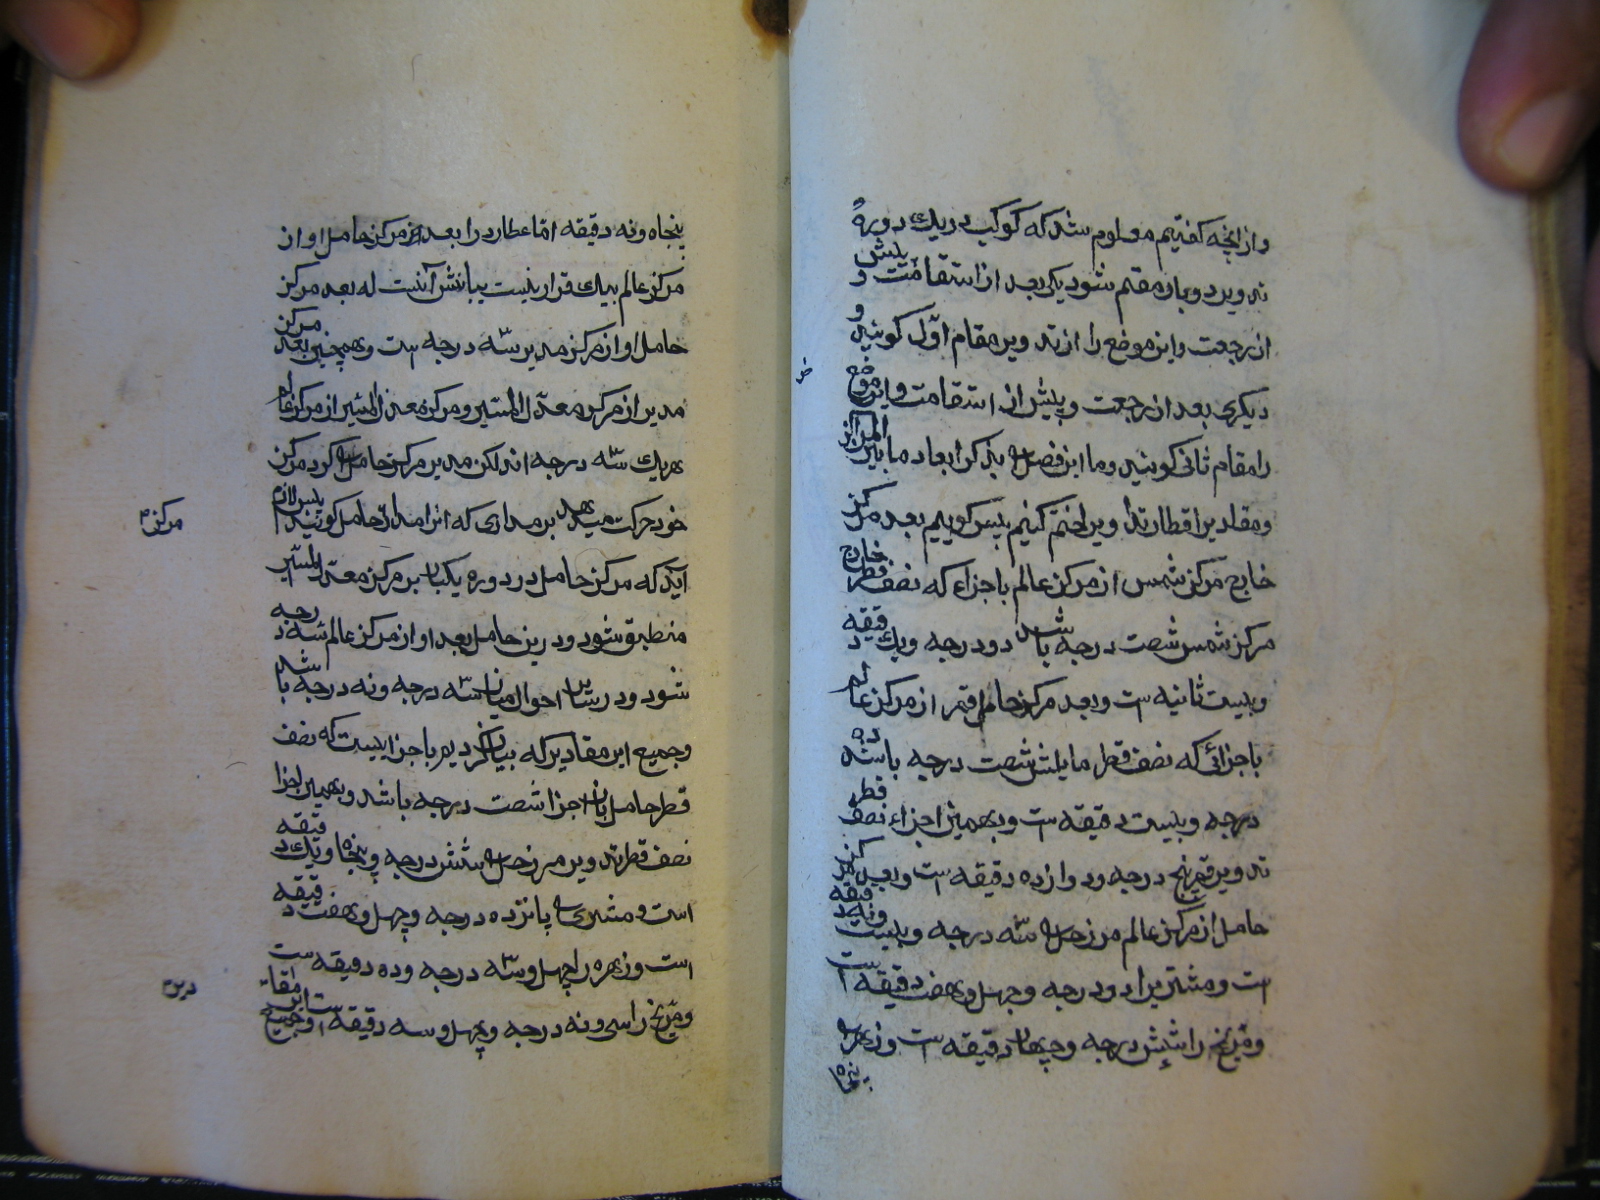 و از آنچه گفتیم معلوم شد که کوکب در یک دورهٔ
تدویر دو بار مقیم شود یکی بعد از استقامت و پیش
از رجعت و این موضع را از تدویر مقام اوّل گویند و
دیگری بعد از رجعت و پیش از استقامت و این موضع
را مقام ثانی گویند و ما این فصل را بذکر ابعاد مابین المراکز
و مقادیر اقطار تداویر ختم کنیم پس گوییم بعد مرکز
خارج مرکز شمس از مرکز عالم باجزاء که نصف قطر خارج
مرکز شمس شصت درجه باشد دو درجه و یک دقیقه
و بیست ثانیه است و بعد مرکز حامل قمر از مرکز عالم
باجزائی که نصف قطر مایلش شصت درجه باشد ده
درجه و بیست دقیقه است و بهمین اجزاء نصف قطر
تدویر قمر پنج درجه و دوازده دقیقه است و بعد مرکز
حامل از مرکز عالم مر زحل را سّه درجه و بیست و نه دقیقه
است و مشتری را دو درجه و چهل و هفت دقیقه است
و مرّیخ را شش درجه و چهار دقیقه است و زهره را
پنجاه و نه دقیقه امّا عطارد را بعد مرکز حامل او از
مرکز عالم بیک قرار نیست بیانش آنست که بعد مرکز
حامل او از مرکز مدیر سّه درجه است و همچنین بعد مرکز
مدیر از مرکز معدّل المسیر و مرکز معدل المسیر از مرکز عالم
هر یک سّه درجه اند لکن مدیر مرکز حامل را گرد مرکز
خود حرکت میدهد بر مداری که انرا مدار حامل گویند پس لازم
اید که مرکز حامل در دوره یکبار بر مرکز معدل المسیر
منطبق شود و درین حامل بعد او از مرکز عالم سّه درجه
شود و در سایر احوال میان سّه درجه و نه درجه باشد
و جمیع این مقادیر که بیان کردیم باجزاییست که نصف
قطر حامل بان اجزا شصت درجه باشد و بهمین اجزا
نصف قطر تدویر مر زحل را شش درجه و پنجاه و یک دقیقه
است و مشتری را پانزده درجه و چهل و هفت دقیقه
است و زهره را چهل و سّه درجه و ده دقیقه است
و مرّیخ را سی و نه درجه و چهل و سه دقیقه است و جمیع این مقا
مرکز